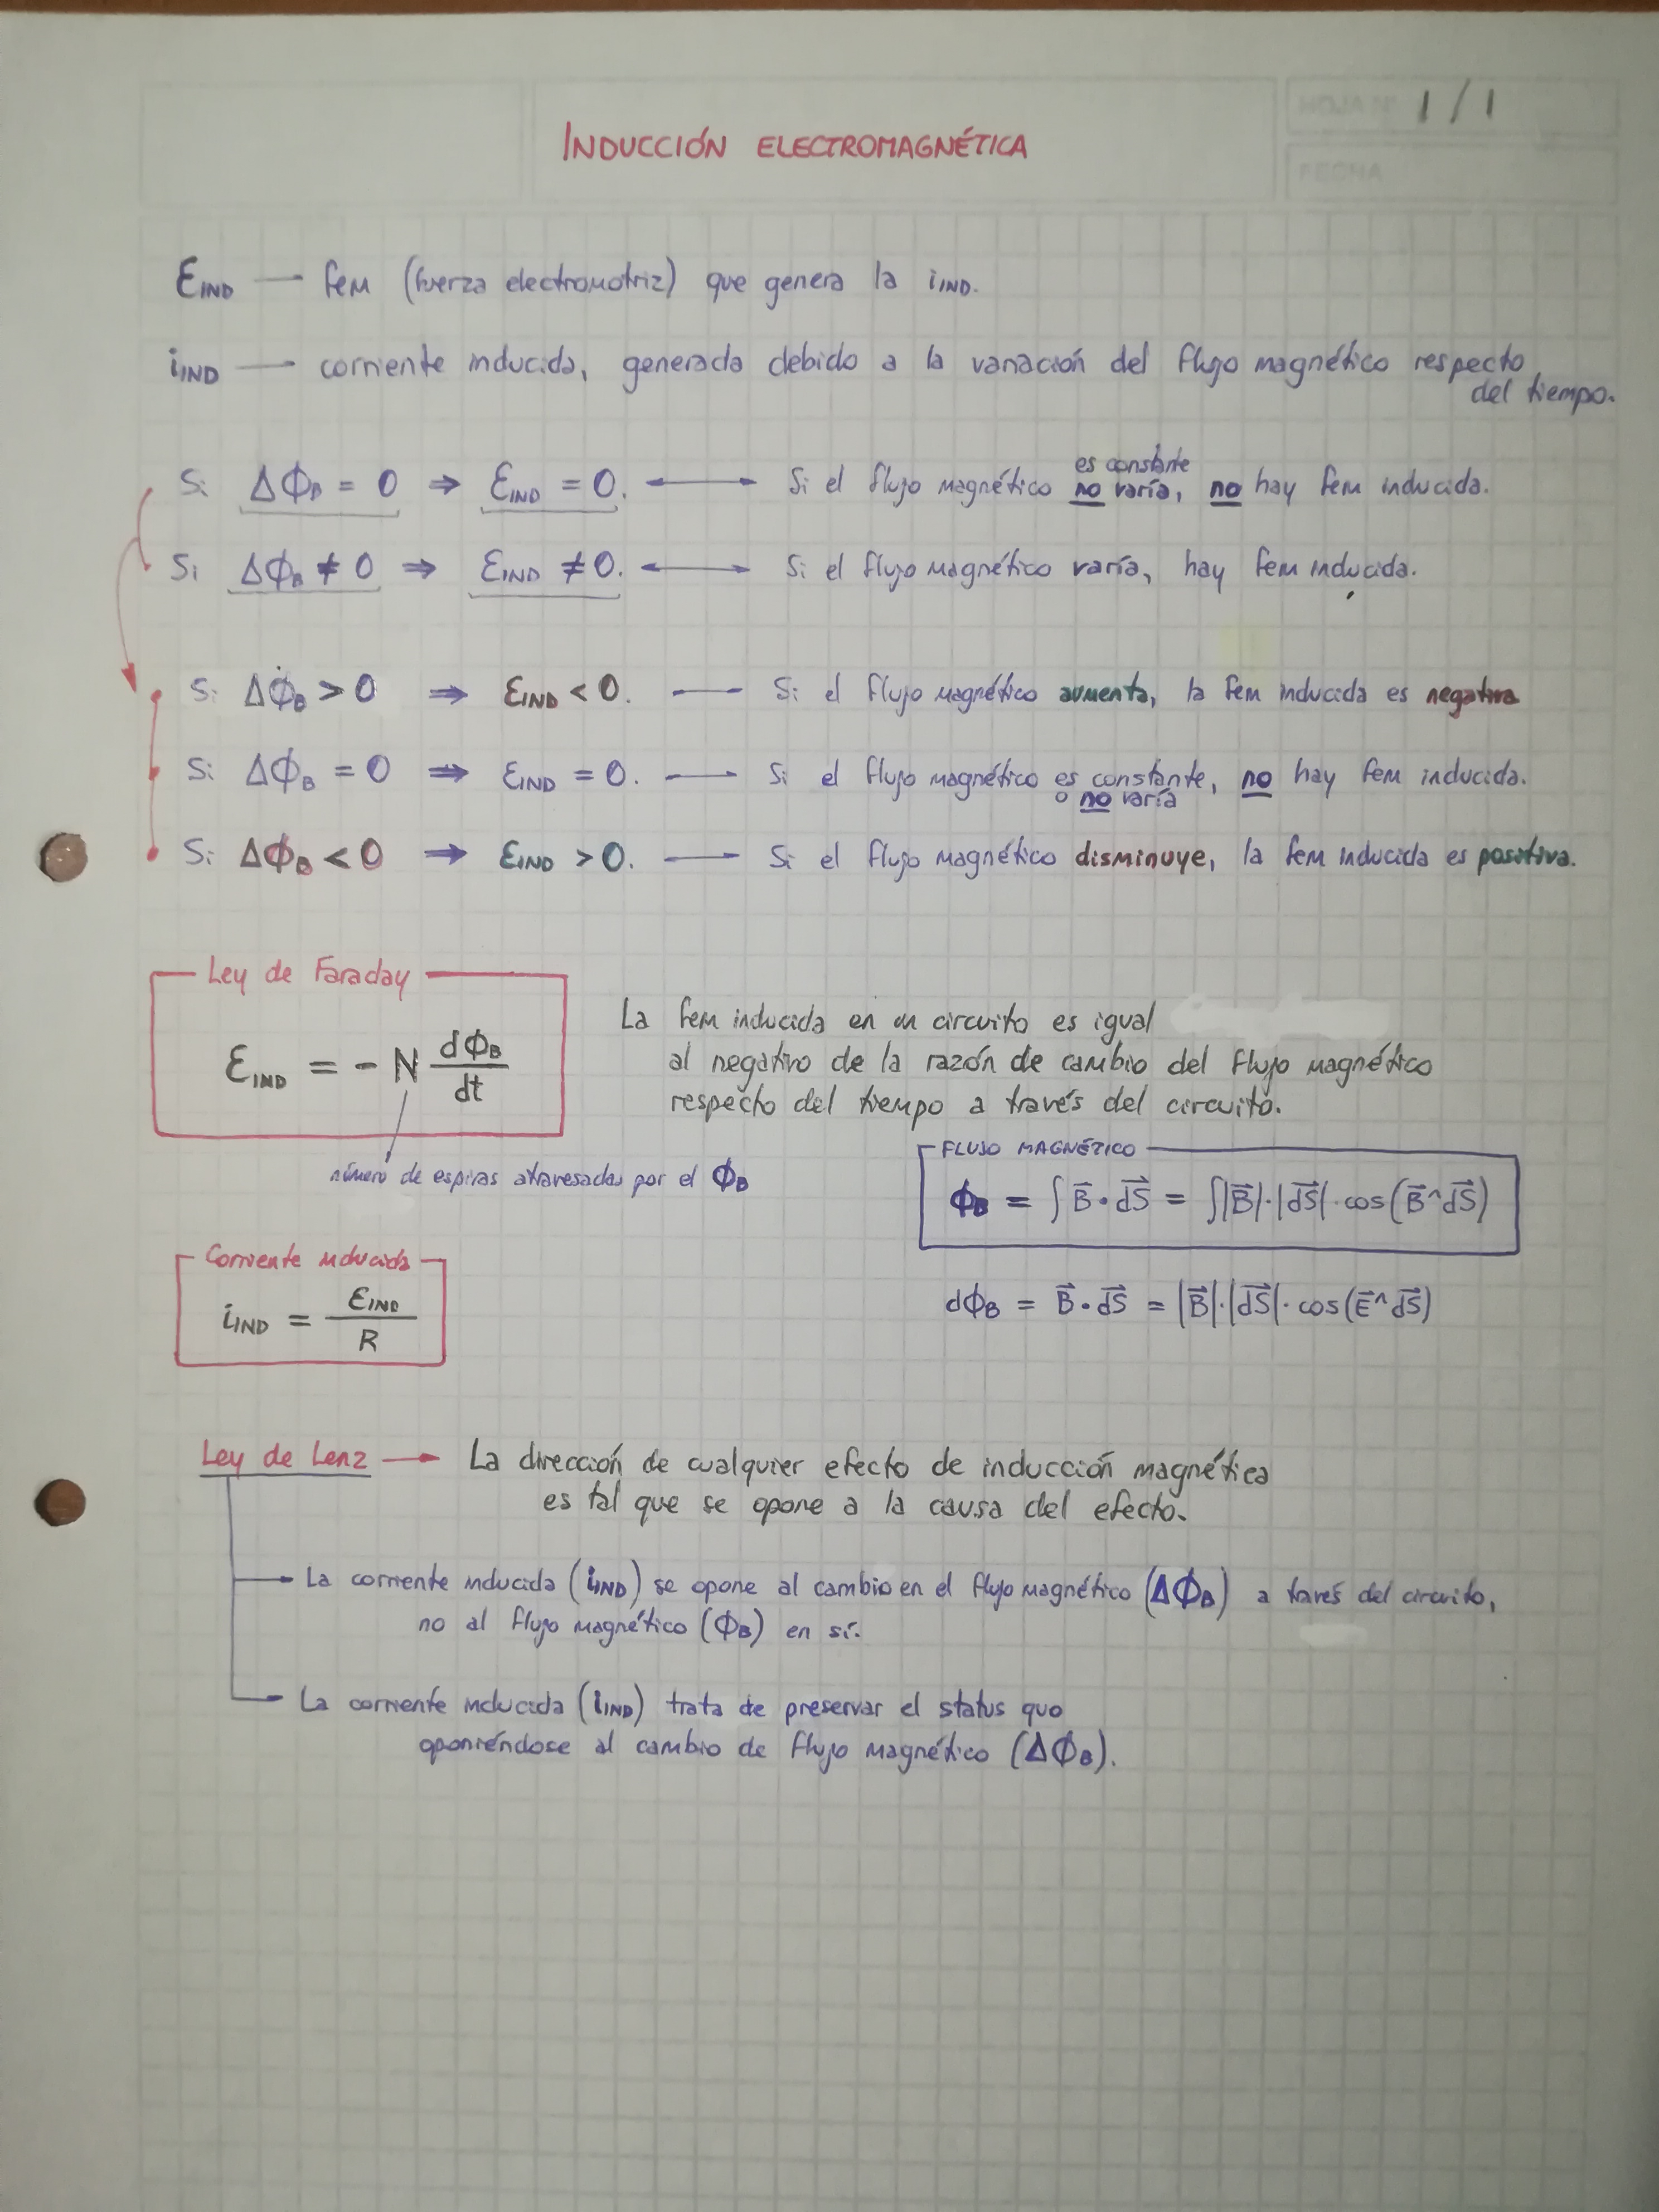 HOJA Nº 1/1
INDUCCIÓN ELECTROMAGNÉTICA
FECHA
ƐIND — fem (fuerza electromotriz) que genera la iIND.
iIND — corriente inducida, generada debido a la variación del flujo magnético respecto
del tiempo.
es constante
Si ΔΦB = 0 ⇒ ƐIND = 0. ⟷ Si el flujo magnético no varía, no hay fem inducida.
Si ΔΦB ≠ 0 ⇒ ƐIND ≠ 0. ⟷ Si el flujo magnético varía, hay fem inducida.
Si ΔΦB > 0 ⇒ ƐIND < 0. — Si el flujo magnético aumenta, la fem inducida es negativa
Si ΔΦB = 0 ⇒ ƐIND = 0. — Si el flujo magnético es constante, no hay fem inducida.
o no varía
Si ΔΦB < 0 ⇒ ƐIND > 0. — Si el flujo magnético disminuye, la fem inducida es positiva.
Ley de Faraday
ƐIND = - N dΦB/dt
La fem inducida en un circuito es igual
al negativo de la razón de cambio del flujo magnético
respecto del tiempo a través del circuito.
número de espiras atravesadas por el ΦB
FLUJO MAGNÉTICO
ΦB = ∫ B⃗ · dS⃗ = ∫|B⃗|·|dS⃗|·cos(B⃗^dS⃗)
dΦB = B⃗ · dS⃗ = |B⃗|·|dS⃗|·cos(E⃗^dS⃗)
Corriente inducida
iIND = ƐIND/R
Ley de Lenz → La dirección de cualquier efecto de inducción magnética
es tal que se opone a la causa del efecto.
→ La corriente inducida (iIND) se opone al cambio en el flujo magnético (ΔΦB) a través del circuito,
no al flujo magnético (ΦB) en sí.
→ La corriente inducida (iIND) trata de preservar el status quo
oponiéndose al cambio de flujo magnético (ΔΦB).